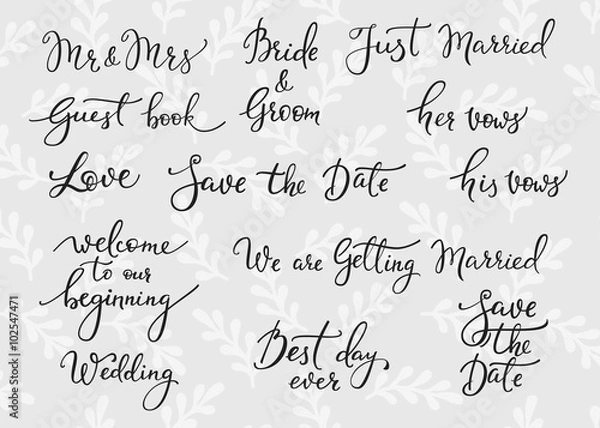 Mr & Mrs
Bride
&
Groom
Just Married
Guest book
her vows
Love
Save the Date
his vows
welcome
to our
beginning
We are Getting Married
Save
the
Date
Wedding
Best day
ever
Adobe Stock | #102547471